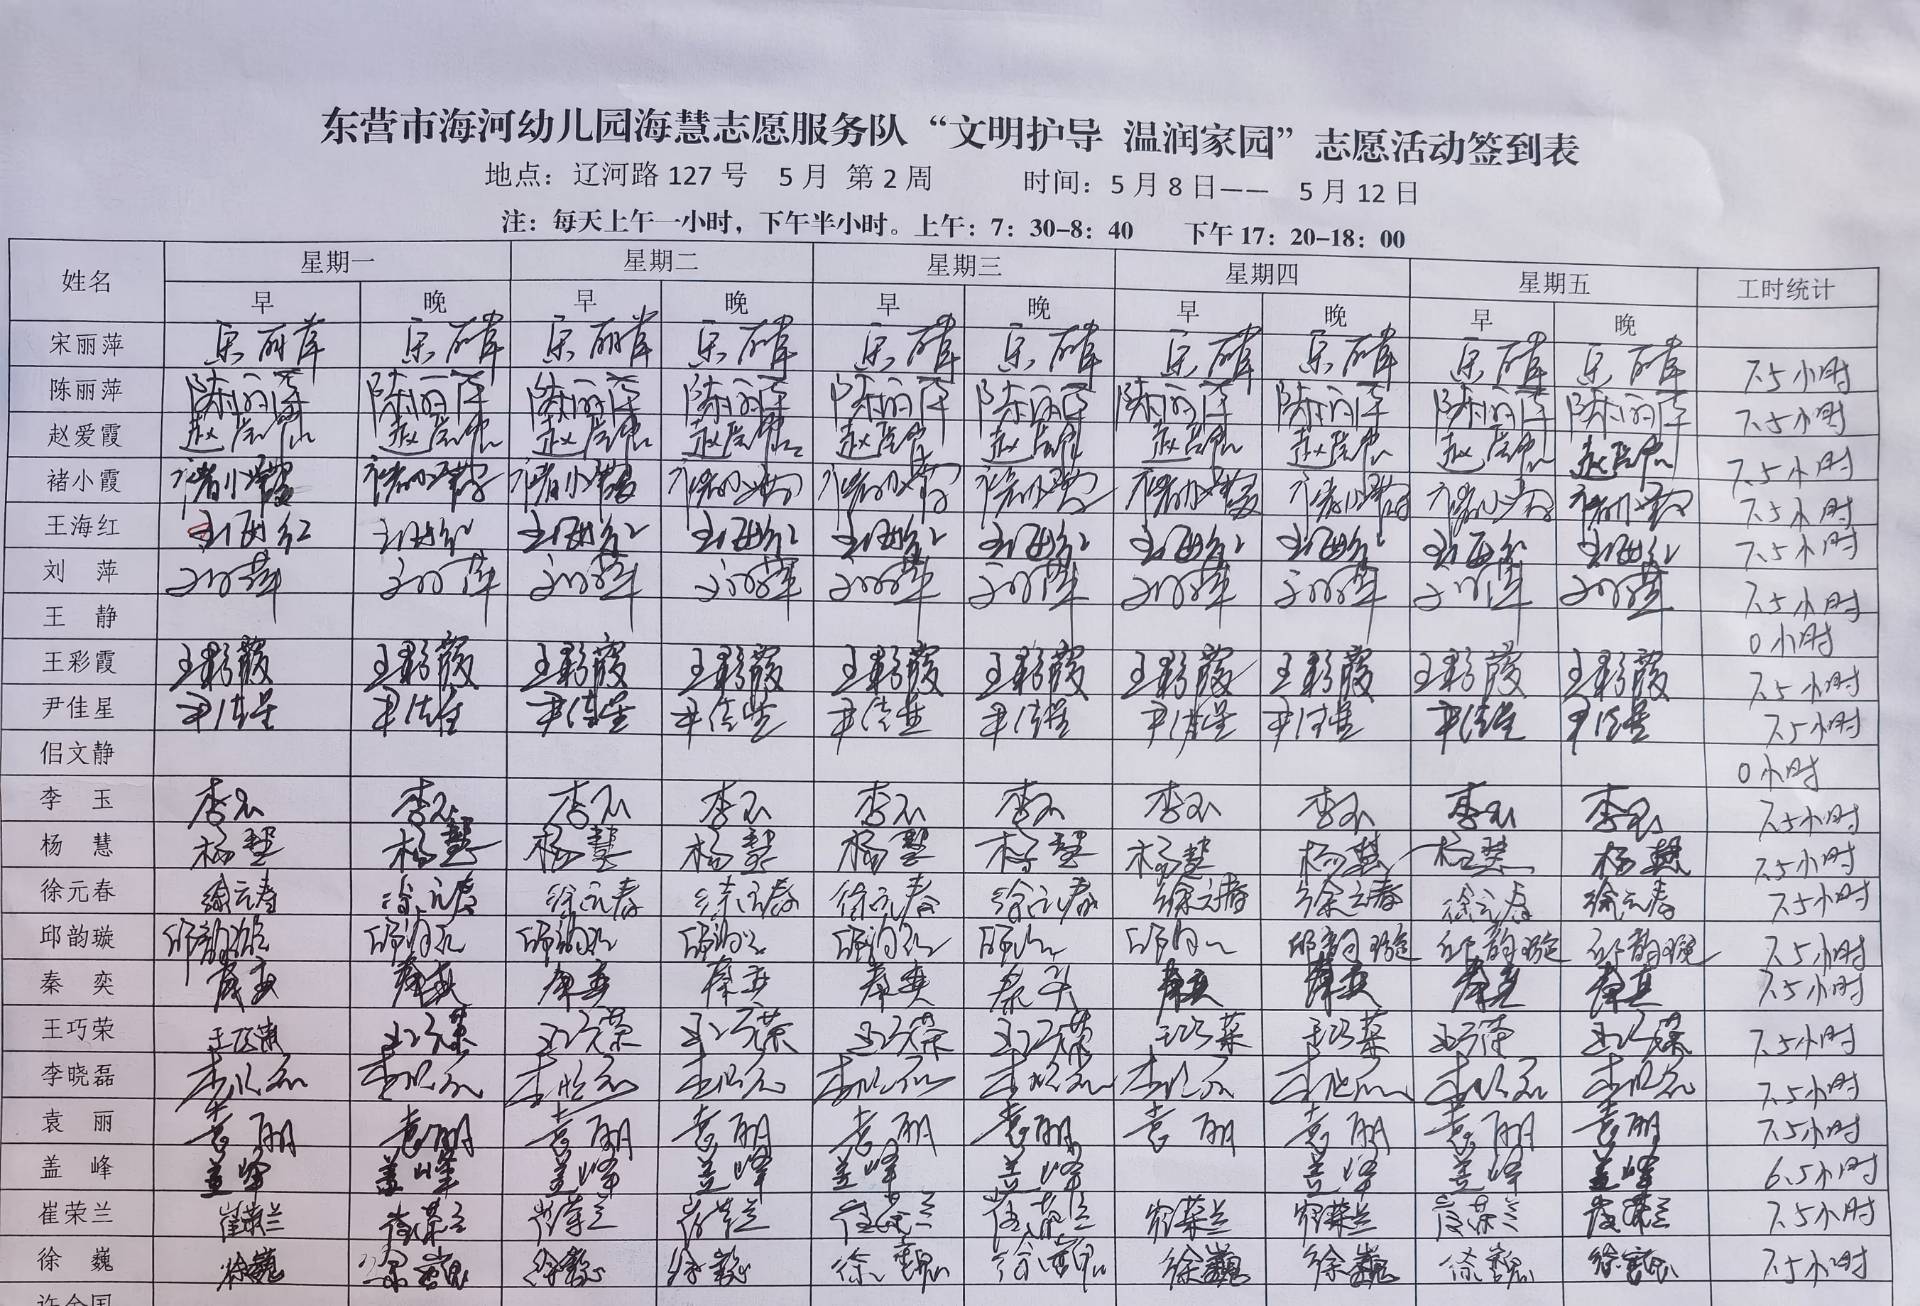 东营市海河幼儿园海慧志愿服务队“文明护导 温润家园”志愿活动签到表
地点：辽河路 127 号 5 月 第 2 周 时间：5 月 8 日—— 5 月 12 日
注：每天上午一小时，下午半小时。上午：7：30-8：40 下午 17：20-18：00
姓名 星期一 星期二 星期三 星期四 星期五 工时统计
早 晚 早 晚 早 晚 早 晚 早 晚
宋丽萍 宋丽萍 宋丽萍 宋丽萍 宋丽萍 宋丽萍 宋丽萍 宋丽萍 宋丽萍 宋丽萍 宋丽萍 7.5小时
陈丽萍 陈丽萍 陈丽萍 陈丽萍 陈丽萍 陈丽萍 陈丽萍 陈丽萍 陈丽萍 陈丽萍 陈丽萍 7.5小时
赵爱霞 赵爱霞 赵爱霞 赵爱霞 赵爱霞 赵爱霞 赵爱霞 赵爱霞 赵爱霞 赵爱霞 赵爱霞 7.5小时
褚小霞 褚小霞 褚小霞 褚小霞 褚小霞 褚小霞 褚小霞 褚小霞 褚小霞 褚小霞 褚小霞 7.5小时
王海红 王海红 王海红 王海红 王海红 王海红 王海红 王海红 王海红 王海红 王海红 7.5小时
刘 萍 刘萍 刘萍 刘萍 刘萍 刘萍 刘萍 刘萍 刘萍 刘萍 刘萍 7.5小时
王 静 0小时
王彩霞 王彩霞 王彩霞 王彩霞 王彩霞 王彩霞 王彩霞 王彩霞 王彩霞 王彩霞 王彩霞 7.5小时
尹佳星 尹佳星 尹佳星 尹佳星 尹佳星 尹佳星 尹佳星 尹佳星 尹佳星 尹佳星 尹佳星 7.5小时
佀文静 0小时
李 玉 李玉 李玉 李玉 李玉 李玉 李玉 李玉 李玉 李玉 李玉 7.5小时
杨 慧 杨慧 杨慧 杨慧 杨慧 杨慧 杨慧 杨慧 杨慧 杨慧 杨慧 7.5小时
徐元春 徐元春 徐元春 徐元春 徐元春 徐元春 徐元春 徐元春 徐元春 徐元春 徐元春 7.5小时
邱韵璇 邱韵璇 邱韵璇 邱韵璇 邱韵璇 邱韵璇 邱韵璇 邱韵璇 邱韵璇 7.5小时
秦 奕 秦奕 秦奕 秦奕 秦奕 秦奕 秦奕 秦奕 秦奕 秦奕 秦奕 7.5小时
王巧荣 王巧荣 王巧荣 王巧荣 王巧荣 王巧荣 王巧荣 王巧荣 王巧荣 王巧荣 王巧荣 7.5小时
李晓磊 李晓磊 李晓磊 李晓磊 李晓磊 李晓磊 李晓磊 李晓磊 李晓磊 李晓磊 李晓磊 7.5小时
袁 丽 袁丽 袁丽 袁丽 袁丽 袁丽 袁丽 袁丽 袁丽 袁丽 袁丽 7.5小时
盖 峰 盖峰 盖峰 盖峰 盖峰 盖峰 盖峰 盖峰 盖峰 盖峰 6.5小时
崔荣兰 崔荣兰 崔荣兰 崔荣兰 崔荣兰 崔荣兰 崔荣兰 崔荣兰 崔荣兰 崔荣兰 崔荣兰 7.5小时
徐 巍 徐巍 徐巍 徐巍 徐巍 徐巍 徐巍 徐巍 徐巍 徐巍 徐巍 7.5小时